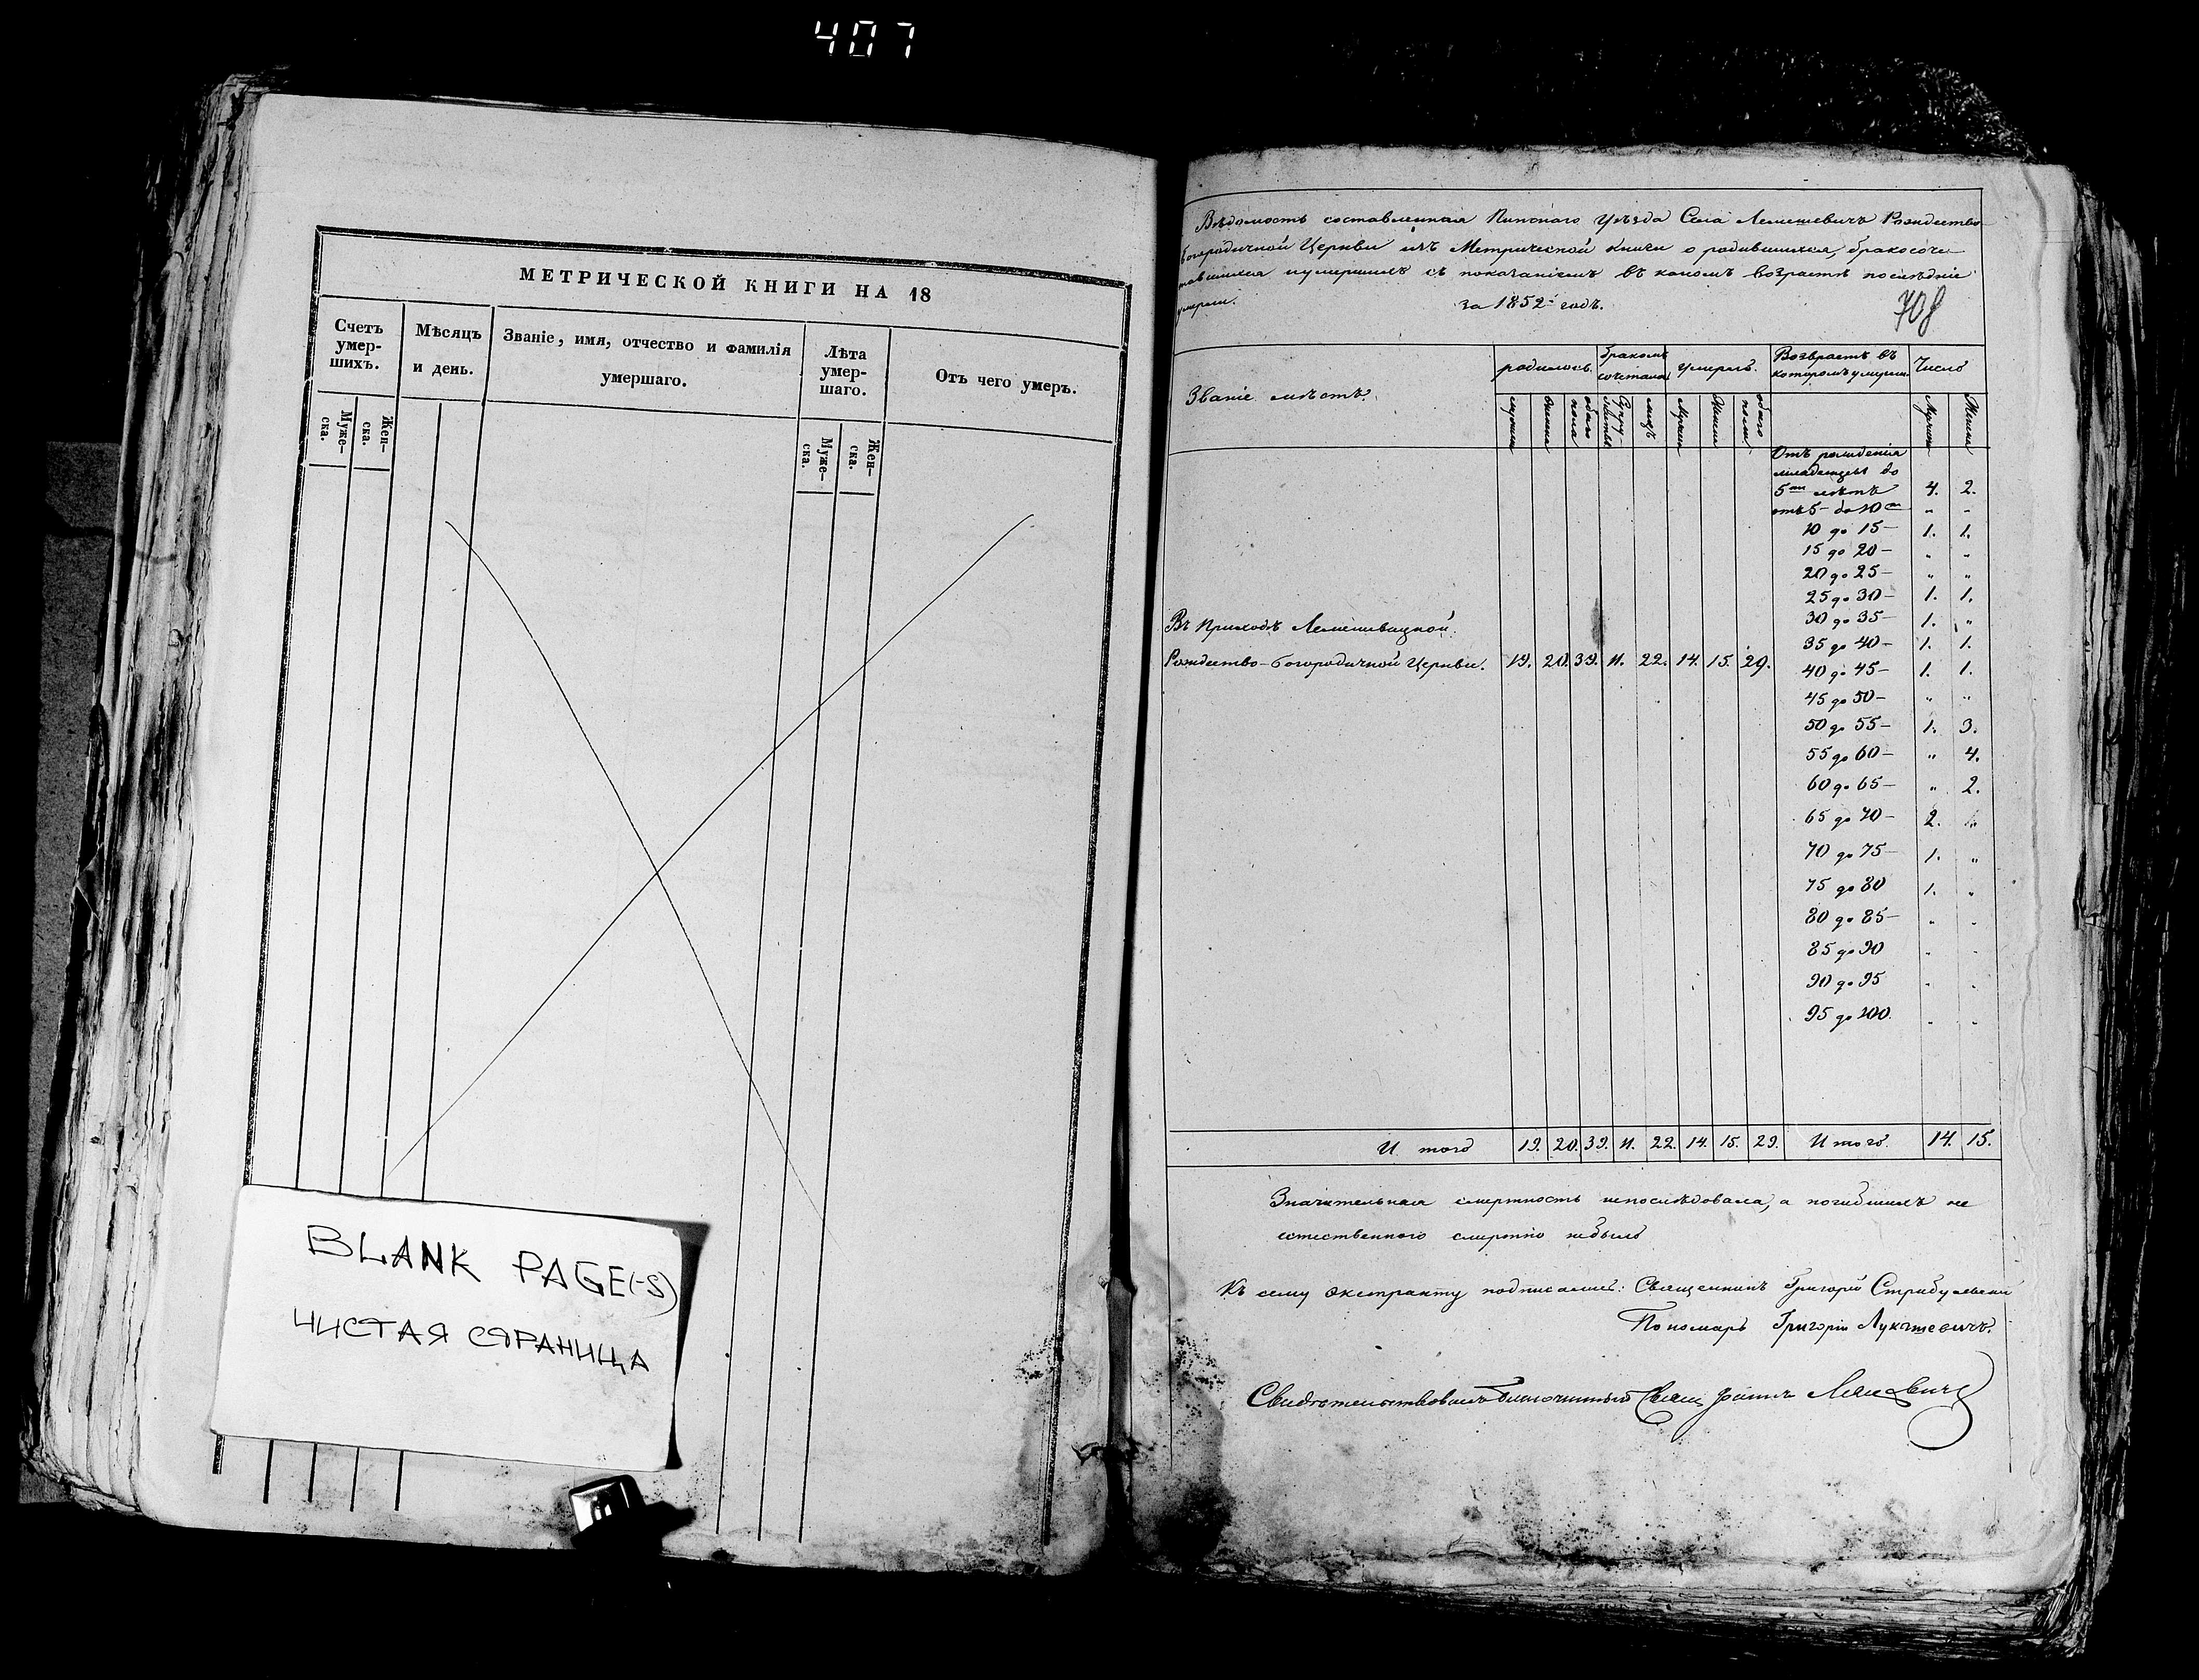 407
МЕТРИЧЕСКОЙ КНИГИ НА 18
Счетъ умер-шихъ.
Мѣсяцъ и день.
Званіе, имя, отчество и фамилія умершаго.
Лѣта умер-шаго.
Отъ чего умеръ.
Муже-ска.
Жен-ска.
Муже-ска.
Жен-ска.
BLANK PAGE(-S)
ЧИСТАЯ СТРАНИЦА
Вѣдомость составленная Пинскаго Уѣзда Села Лемешевичъ Рождество-
богородичной Церкви изъ Метрической книги о родившихся, бракосоче-
тавшихся и умершихъ съ показаніемъ въ какомъ возрастѣ послѣдніе
умерли. за 1852й годъ.
708
Званіе мѣстъ.
родилось.
бракомъ
умерло.
Возврастъ въ
которомъ умерли
Число
обоего пола
Супру-
обоего пола
Отъ рожденія
младенцевъ до
5ти лѣтъ 4. 2.
отъ 5 до 10ти " "
10 до 15 — 1. 1.
15 до 20 — " "
20 до 25 — " "
25 до 30 — 1. 1.
30 до 35 — 1. "
35 до 40 — 1. 1.
40 до 45 — 1. 1.
45 до 50 — " "
50 до 55 — 1. 3.
55 до 60 — " 4.
60 до 65 — " 2.
65 до 70 — 2. "
70 до 75 — 1. "
75 до 80 1. "
80 до 85 — " "
85 до 90 " "
90 до 95 " "
95 до 100. " "
Въ Приходѣ
Рождество-богородичной Церкви. 19. 20. 39. 11. 22. 14. 15. 29.
И того 19. 20. 39. 11. 22. 14. 15. 29. Итого. 14. 15.
Значительная смертность непослѣдовала, а погибшихъ не
естественною смертію небыло
Къ сему экстракту подписались: Священникъ Григорій
Пономарь Григорій Лукашевичъ.
Свидѣтельствовалъ Благочинный Свящ